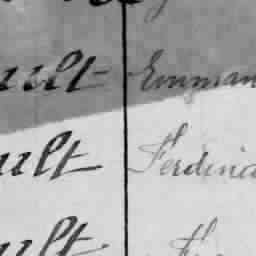 ult Emman
ult Ferdina
ult